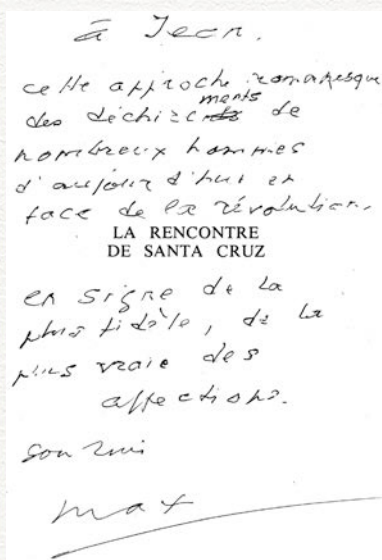 à Jean.
cette approche romanesque
des déchirements de
nombreux hommes
d'aujourd'hui en
face de la révolution.
LA RENCONTRE
DE SANTA CRUZ
en signe de la
plus fidèle, de la
plus vraie des
affections.
son ami
Max